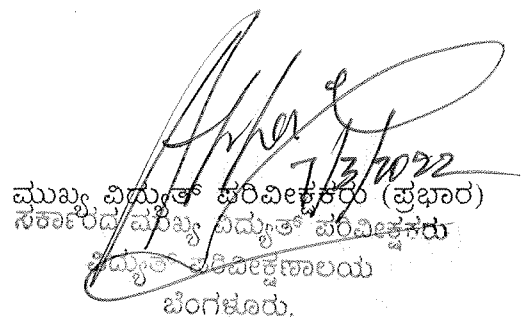 7/3/2022
ಮುಖ್ಯ ವಿದ್ಯುತ್ ಪರಿವೀಕ್ಷಕರು (ಪ್ರಭಾರ)
ಸರ್ಕಾರದ ಮುಖ್ಯ ವಿದ್ಯುತ್ ಪರಿವೀಕ್ಷಕರು
ವಿದ್ಯುತ್ ಪರಿವೀಕ್ಷಣಾಲಯ
ಬೆಂಗಳೂರು.